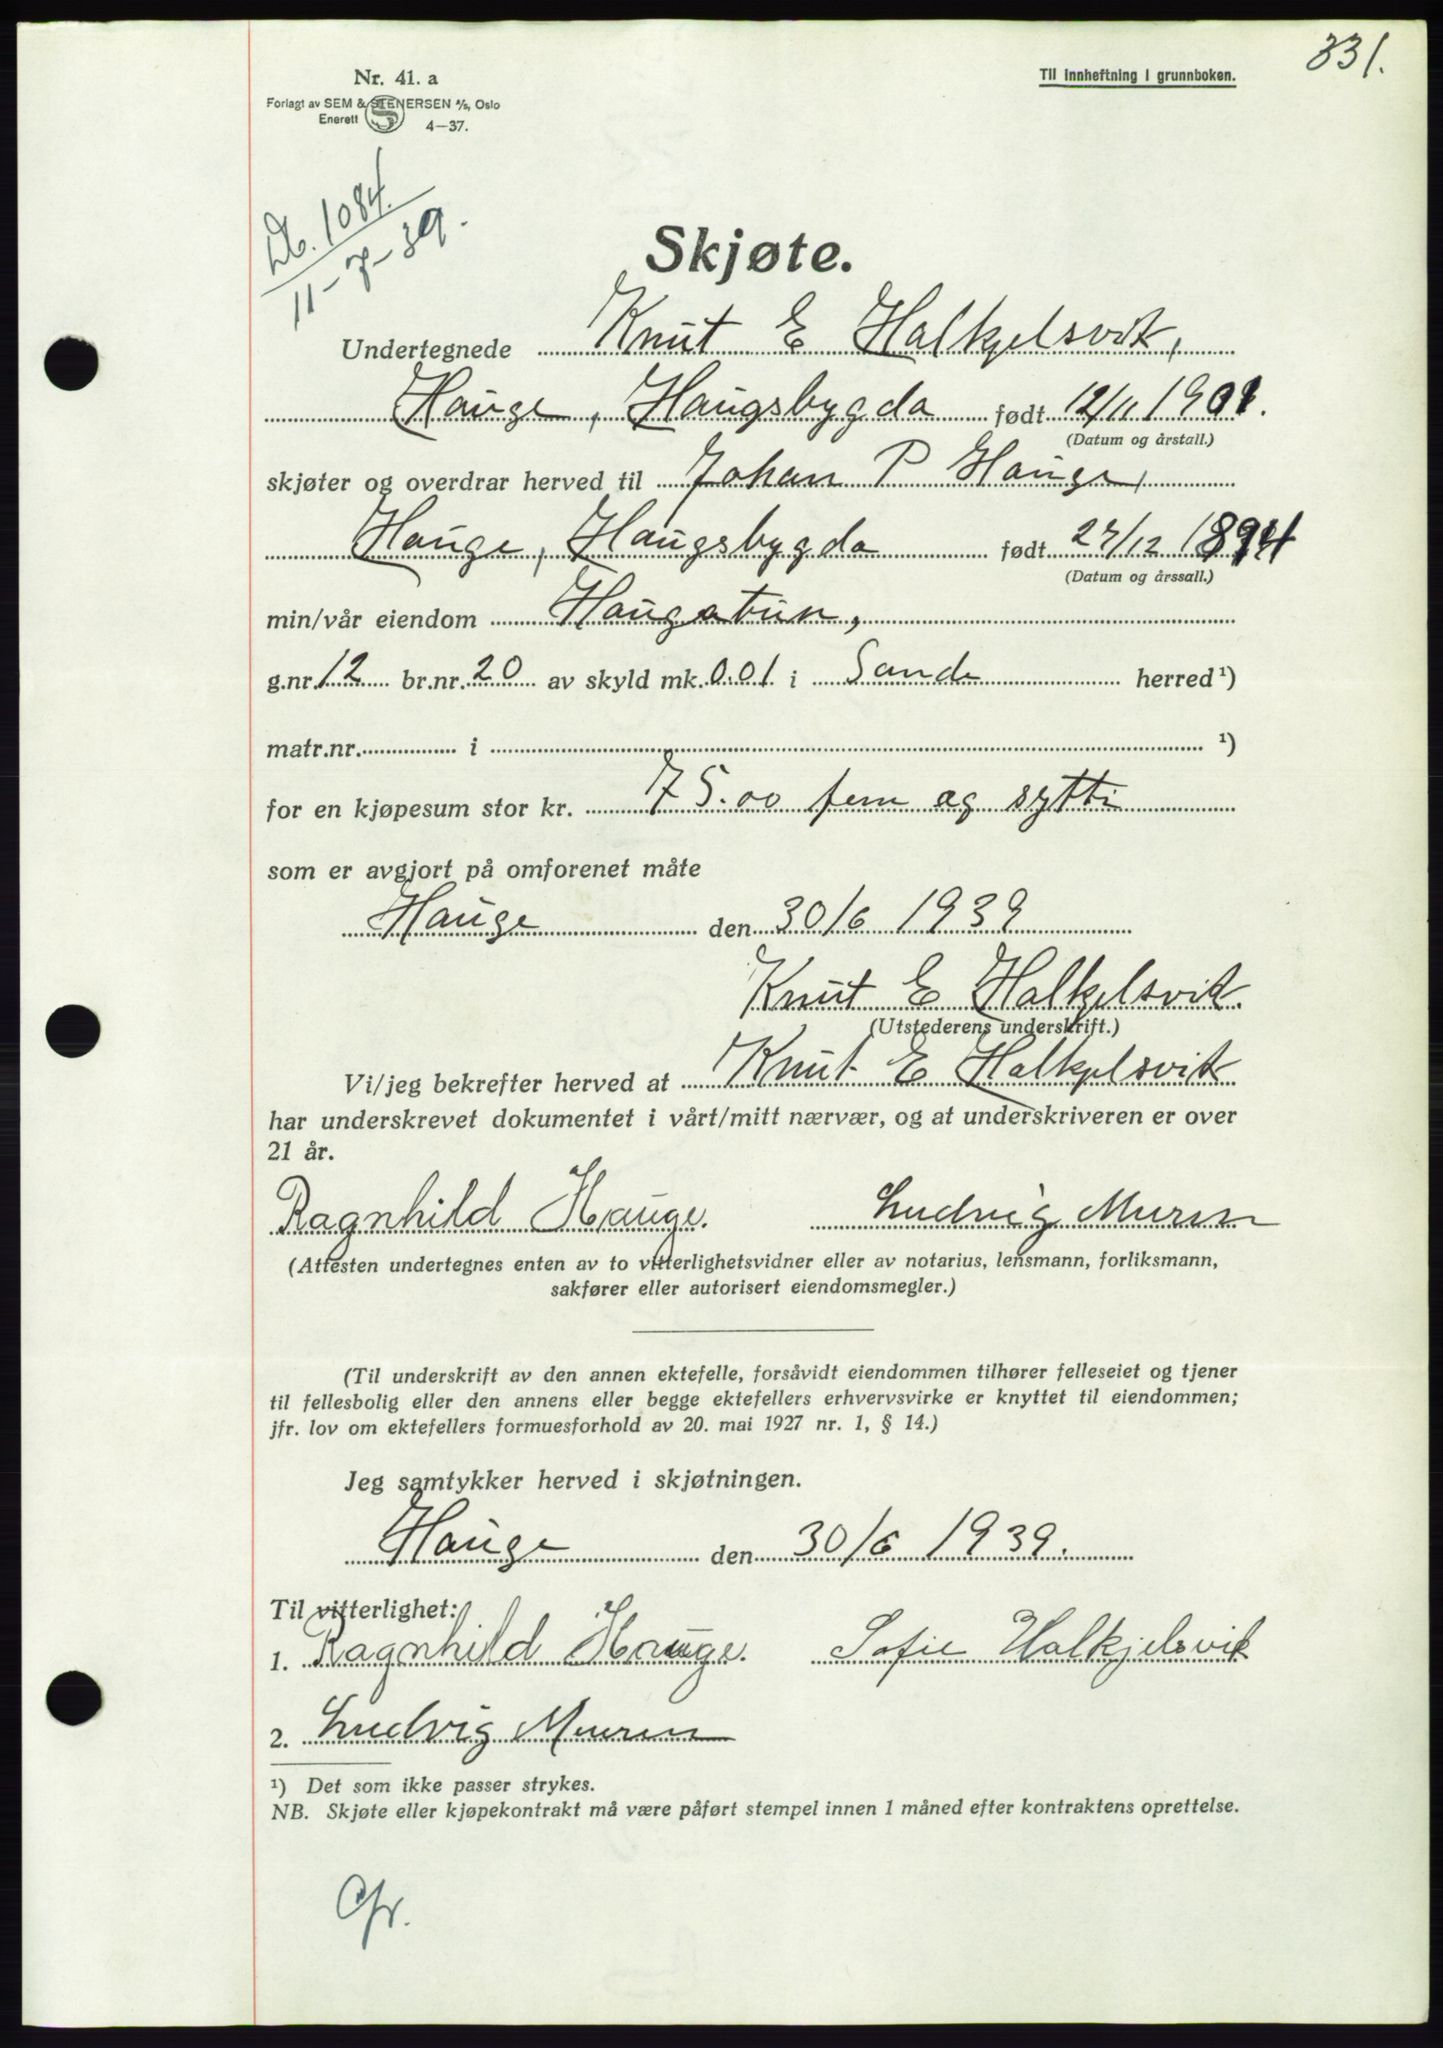 331.
Nr. 41. a
Til innheftning i grunnboken.
Forlagt av SEM & STENERSEN A/S, Oslo
Enerett
4—37.
Db. 1084.
11-7-39.
Skjøte.
Undertegnede Knut E Halkjelsvik,
Hauge, Haugsbygda født 12/11 1901.
(Datum og årstall.)
skjøter og overdrar herved til Johan P Hauge,
Hauge, Haugsbygda født 27/12 1894
(Datum og årssall.)
min/vår eiendom Haugatun,
g.nr. 12 br.nr. 20 av skyld mk. 0.01 i Sande herred ¹)
matr.nr. i ¹)
for en kjøpesum stor kr. 75.00 fem og sytti
som er avgjort på omforenet måte
Hauge den 30/6 1939
Knut E Halkjelsvik.
(Utstederens underskrift.)
Vi/jeg bekrefter herved at Knut E Halkjelsvik
har underskrevet dokumentet i vårt/mitt nærvær, og at underskriveren er over
21 år.
Ragnhild Hauge. Ludvig Muren
(Attesten undertegnes enten av to vitterlighetsvidner eller av notarius, lensmann, forliksmann,
sakfører eller autorisert eiendomsmegler.)
(Til underskrift av den annen ektefelle, forsåvidt eiendommen tilhører felleseiet og tjener
til fellesbolig eller den annens eller begge ektefellers erhvervsvirke er knyttet til eiendommen;
jfr. lov om ektefellers formuesforhold av 20. mai 1927 nr. 1, § 14.)
Jeg samtykker herved i skjøtningen.
Hauge den 30/6 1939.
Til vitterlighet:
1. Ragnhild Hauge. Sofie Halkjelsvik
2. Ludvig Muren
¹) Det som ikke passer strykes.
NB. Skjøte eller kjøpekontrakt må være påført stempel innen 1 måned efter kontraktens oprettelse.